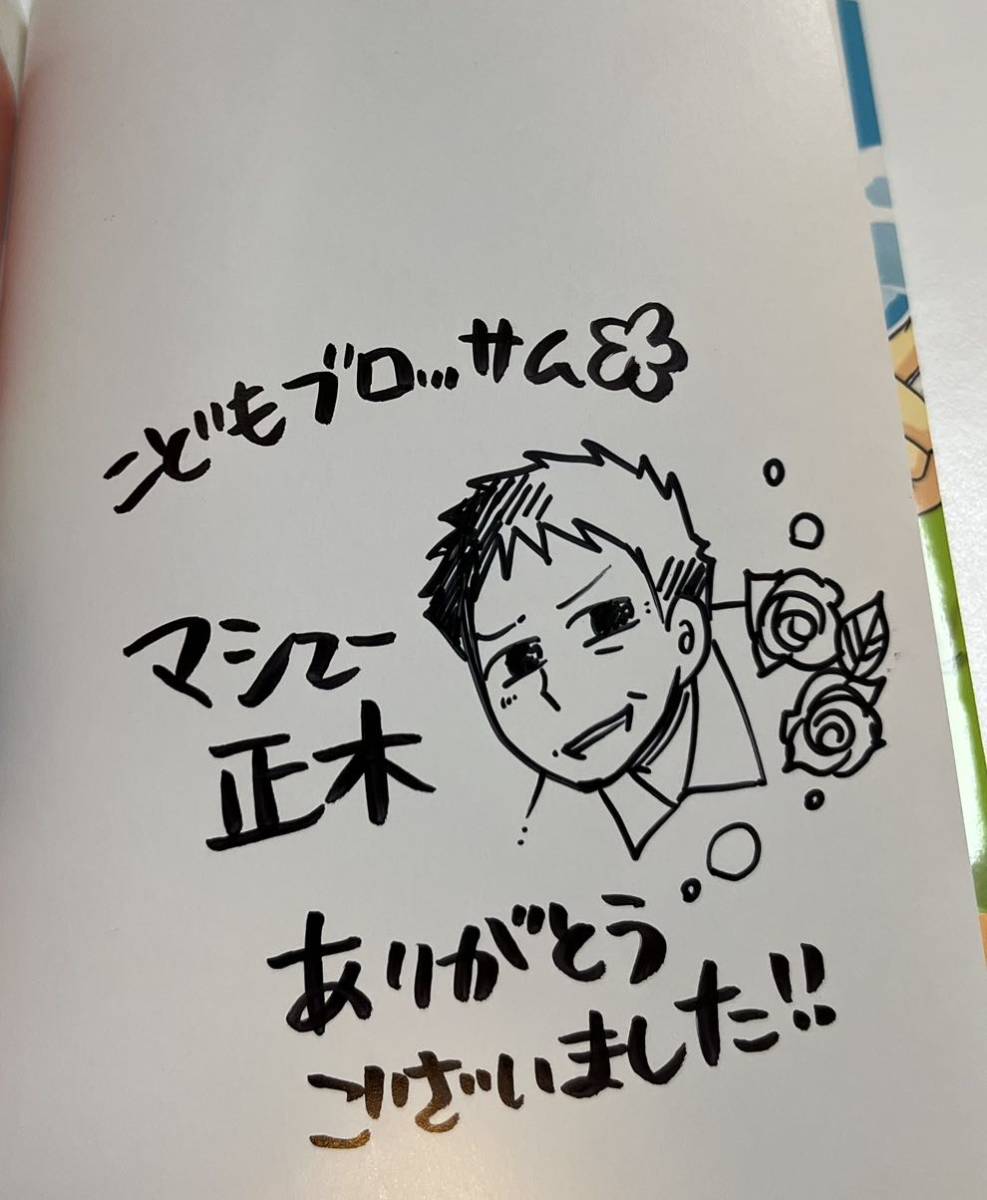 こどもブロ…サム
マシュー
正木
ありがとう
ございました!!